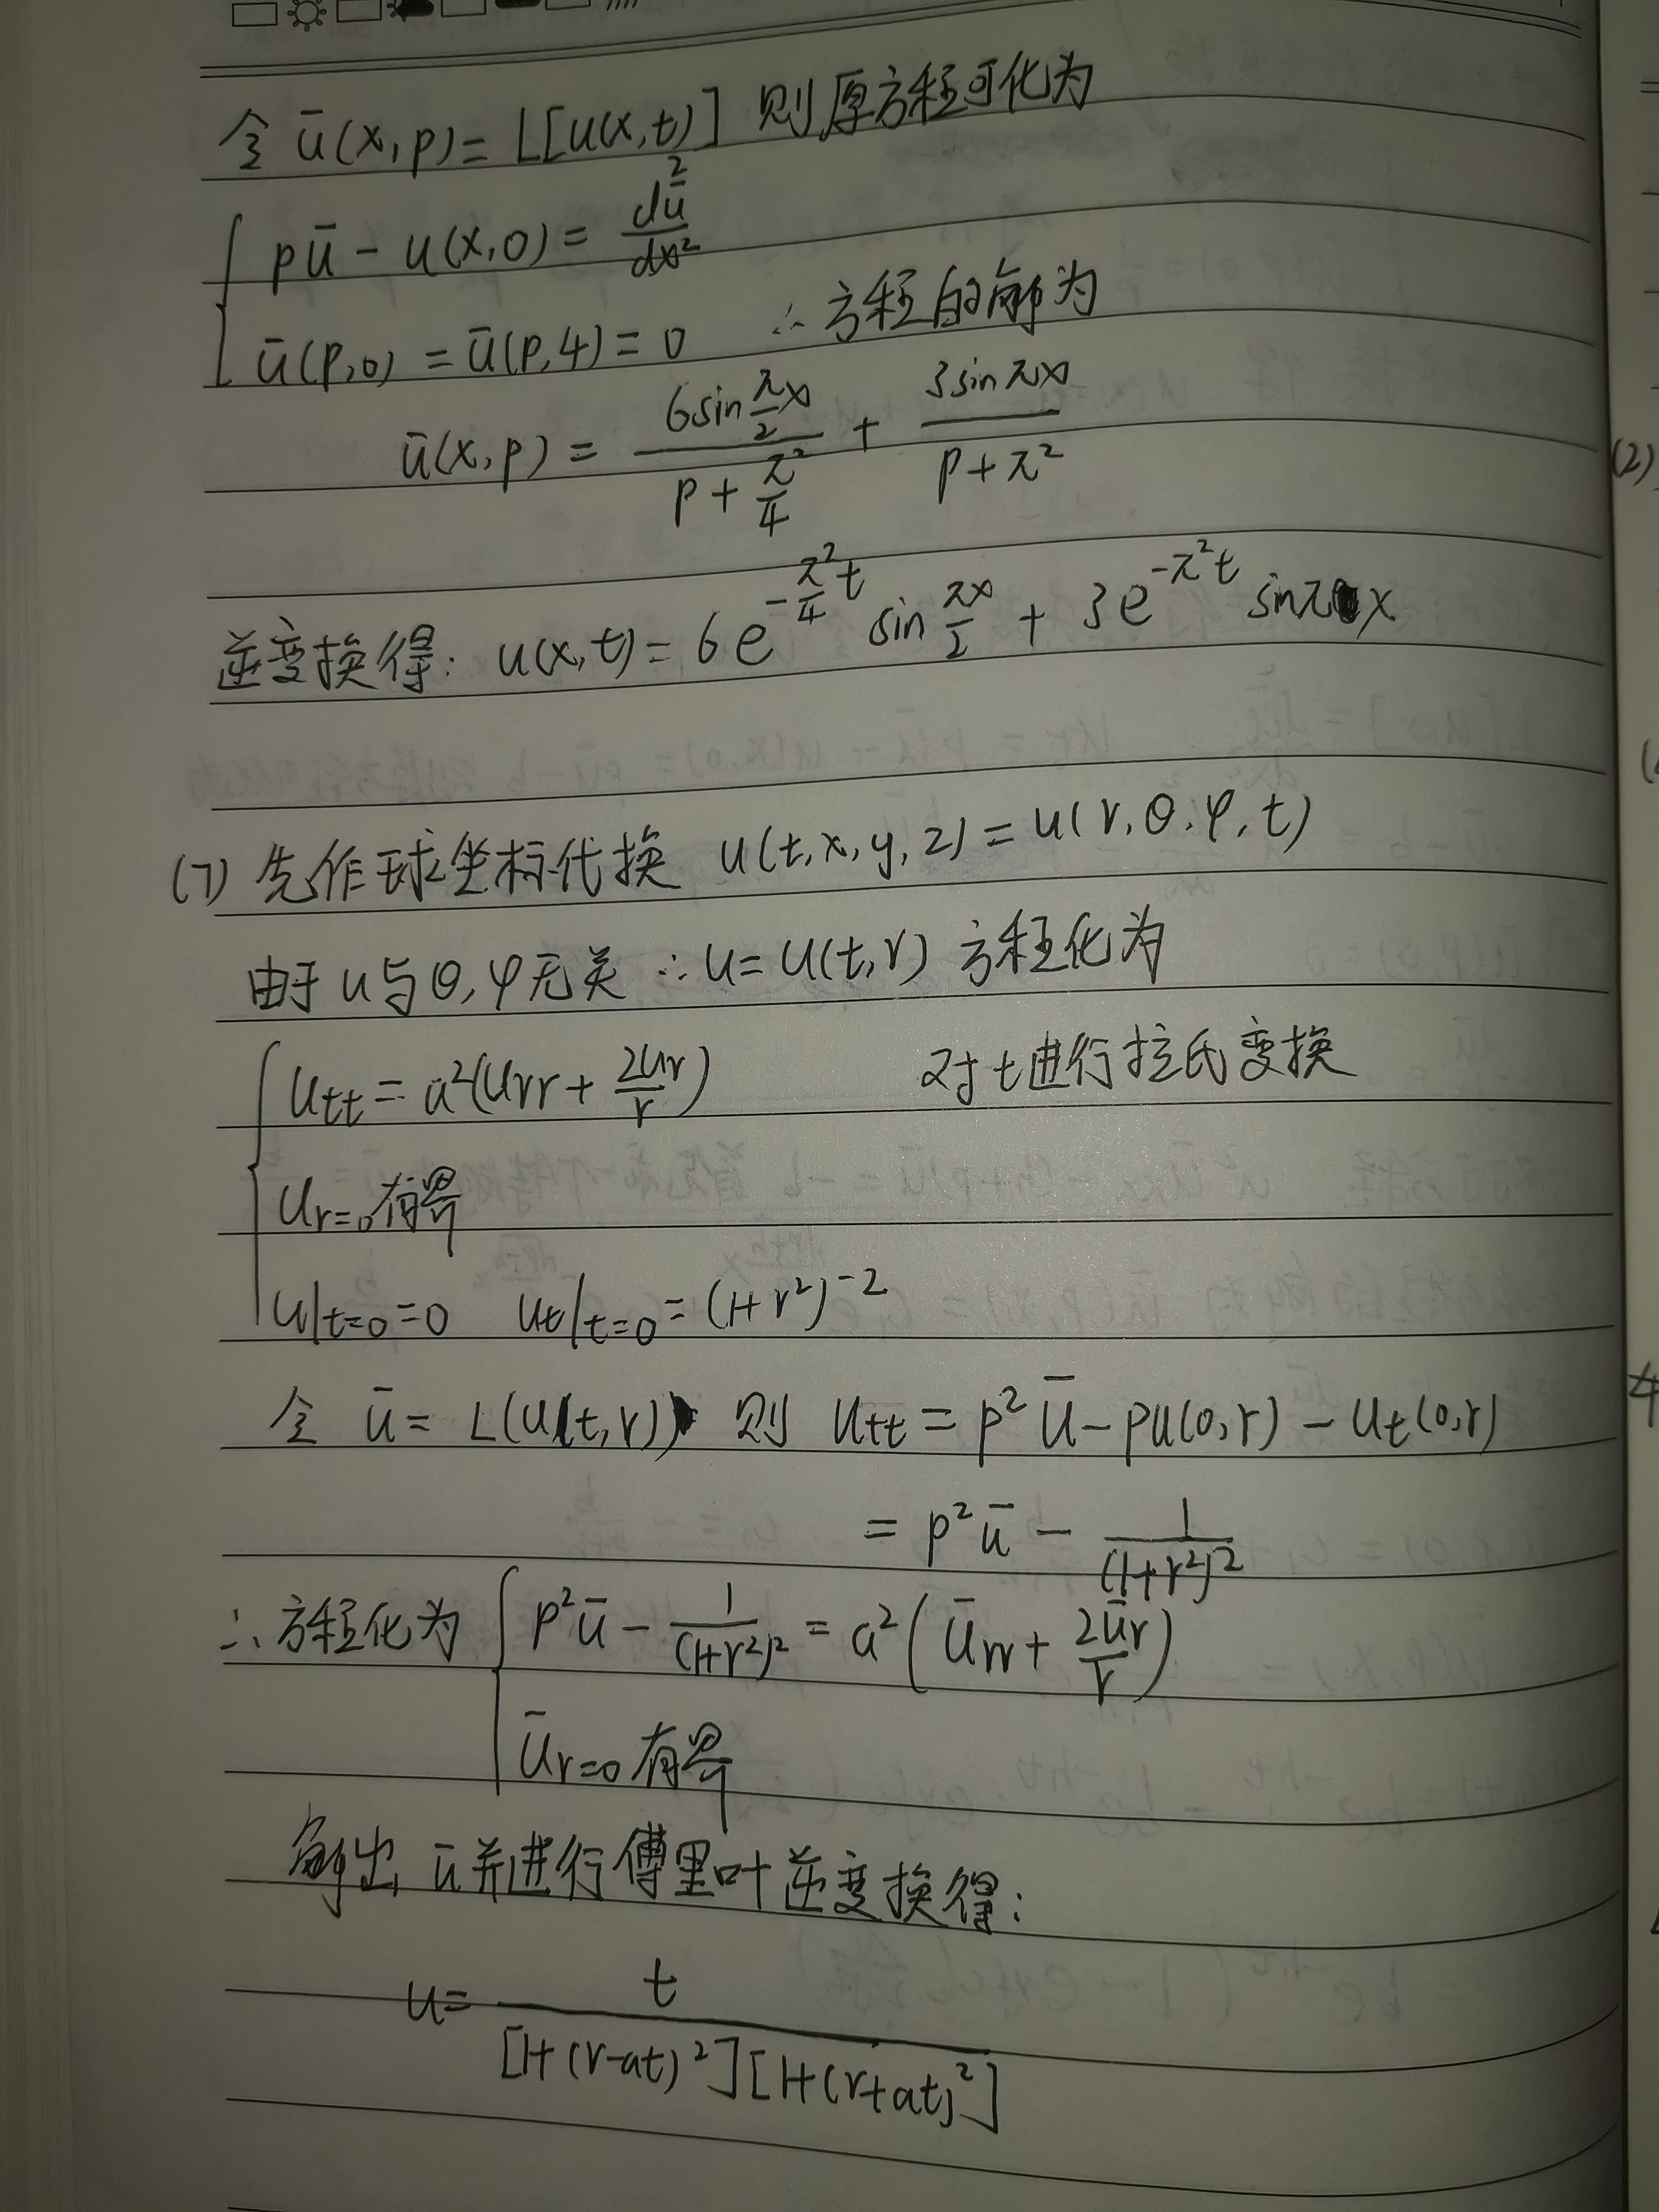 令 ū(x,p)= L[u(x,t)] 则原方程可化为
pū - u(x,0) = d²ū/dx²
ū(p,0) = ū(p,4) = 0 ∴方程的解为
ū(x,p) = 6sin(π/2)x/(p+π²/4) + 3sinπx/(p+π²)
逆变换得: u(x,t) = 6e^(-π²/4 t) sin πx/2 + 3e^(-π²t) sinπx
(7) 先作球坐标代换 u(t,x,y,z) = u(r,θ,φ,t)
由于u与θ,φ无关 ∴u=u(t,r) 方程化为
utt = a²(urr + 2ur/r) 对t进行拉氏变换
ur=0有界
u|t=0 = 0 ut|t=0 = (1+r²)^-2
令 ū = L(u(t,r)) 则 utt = p²ū - pu(0,r) - ut(0,r)
= p²ū - 1/(1+r²)²
∴方程化为 p²ū - 1/(1+r²)² = a²(ūrr + 2ūr/r)
ūr=0有界
解出ū并进行傅里叶逆变换得:
u = t/[1+(r-at)²][1+(r+at)²]
(2)